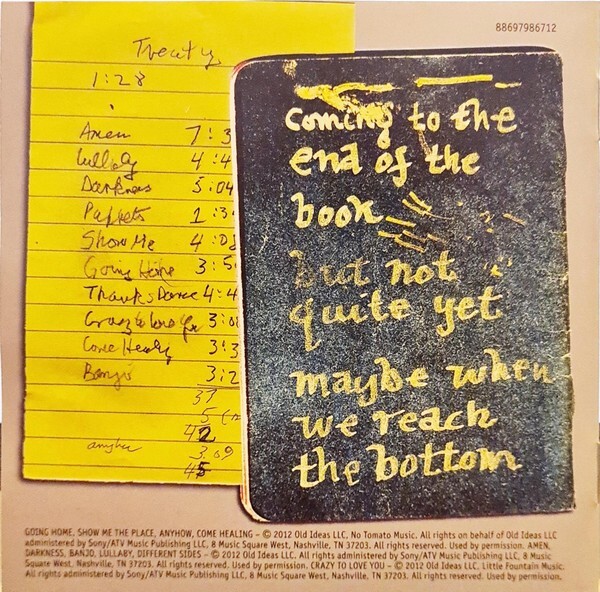 88697986712
Treaty
1:28
Amen 7:3
Lullaby 4:4
Darkness 5:04
Puppets 2:3
Show Me 4:08
Going Home 3:5
Thanks Dance 4:4
Crazy to love you 3:0
Come Healing 3:3
Banjo 3:2
37
5
42
anyhow 3.09
45
coming to the
end of the
book
but not
quite yet
maybe when
we reach
the bottom
GOING HOME, SHOW ME THE PLACE, ANYHOW, COME HEALING – © 2012 Old Ideas LLC, No Tomato Music. All rights on behalf of Old Ideas LLC
administered by Sony/ATV Music Publishing LLC, 8 Music Square West, Nashville, TN 37203. All rights reserved. Used by permission. AMEN,
DARKNESS, BANJO, LULLABY, DIFFERENT SIDES – © 2012 Old Ideas LLC. All rights administered by Sony/ATV Music Publishing LLC, 8 Music Square West, Nashville,
TN 37203. All rights reserved. Used by permission. CRAZY TO LOVE YOU – © 2012 Old Ideas LLC, Little Fountain Music.
All rights administered by Sony/ATV Music Publishing LLC, 8 Music Square West, Nashville, TN 37203. All rights reserved. Used by permission.